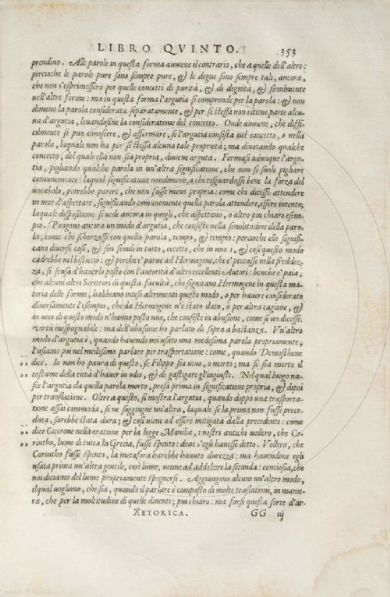 LIBRO QVINTO. 353
prendino. Alle parole in questa forma auuiene il contrario, che a quelle dell'altre:
percioche le parole pure sono sempre pure, & le degne sono sempre tali, ancora,
che non s'esprimessero per quelle concetti di purità, & di degnità, & similmente
nell'altre forme: ma in questa forma l'argutia si comprende per la parola: & non
dimeno la parola considerata separatamente, & per se stessa non ritiene parte alcu-
na d'argutia, leuandosine la consideratione del concetto. Onde auuiene, che diffi-
cilmente si può conoscere, & affermare, se l'argutia consista nel concetto, o nella
parola, laquale non ha per se stessa alcuna tale proprietà; ma denotando qualche
concetto, del quale ella non sia propria, diuiene arguta. Formasi adunque l'argu-
tia, pigliando qualche parola in un'altra significatione, che non si suole pigliare
communemente: laqual significatione nondimeno, a chi risguardasse bene la forza del
uocabolo, potrebbe parere, che non fusse meno propria: come chi dicesse attendere
in uece d'aspettare, significando communemente quella parola attendere, essere intento;
la quale dispositione si uede ancora in quegli, che aspettano, o altro piu chiaro esem-
pio. Pongono ancora un modo d'argutia, che consiste nella similitudine della paro-
la; come chi scherzasse con quelle parole, tempo, & tempio: percioche elle significa-
no diuerse cose, & son simili in tutto, eccetto, che in uno i, & cosi questo modo
caderebbe nel bisticcio; & perche è parue ad Hermogene, che è peccasse nella freddez-
za, si scusa d'hauerlo posto con l'autorità d'altri eccellenti Autori: benche e' paia,
che alcuni altri Scrittori di questa facultà, che seguitano Hermogene in questa ma-
teria delle forme, habbiano inteso altrimenti questo modo, o per hauere considerato
diuersamente l'esempio, che da Hermogene n'è stato dato, o per altra cagione, &
in uece di questo modo n'hanno posto uno, che consiste in abusione, come se un dicesse,
uertù inespugnabile: ma dell'abusione ho parlato di sopra a bastanza. Vn'altro
modo d'argutia è, quando hauendo noi usato una medesima parola propriamente,
l'usiamo poi nel medesimo parlare per traslatione: come, quando Demosthene
dice. Io non ho paura di questo, se Filippo sia uiuo, o morto; ma se sia morto il
costume della città d'hauer in odio, & di gastigare gl'ingiusti. Nel qual luogo na-
sce l'argutia da quella parola morto, presa prima in significatione propria, & dipoi
per traslatione. Oltre a questo, si mostra l'argutia, quando doppo una trasporta-
tione assai commoda, se ne soggiugne un'altra, laquale se la prima non fusse prece-
duta, sarebbe stata dura; & cosi uiene ad essere mitigata dalla precedente: come
dice Cicerone nella oratione per la legge Manilia, i nostri antichi uollero, che Co-
rintho, lume di tutta la Grecia, fusse spento: doue s'egli hauesse detto. Vollero, che
Corintho fusse spento, la metafora harebbe hauuto durezza: ma hauendone egli
usata prima un'altra gentile, cioè lume, uenne ad addolcire la seconda: conciosia, che
noi diciamo del lume propriamente spegnersi. Aggiungono alcuni un'altro modo,
il qual uogliono, che sia, quando il parlare è composto di molte traslationi, in manie-
ra, che per la moltitudine di quelle diuenti piu chiaro: ma forsi questa sorte d'ar-
RETORICA. GG iij